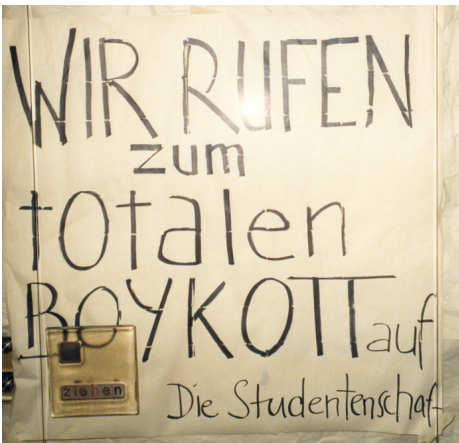 WIR RUFEN
zum
totalen
BOYKOTT auf
ziehen
Die Studentenschaf-